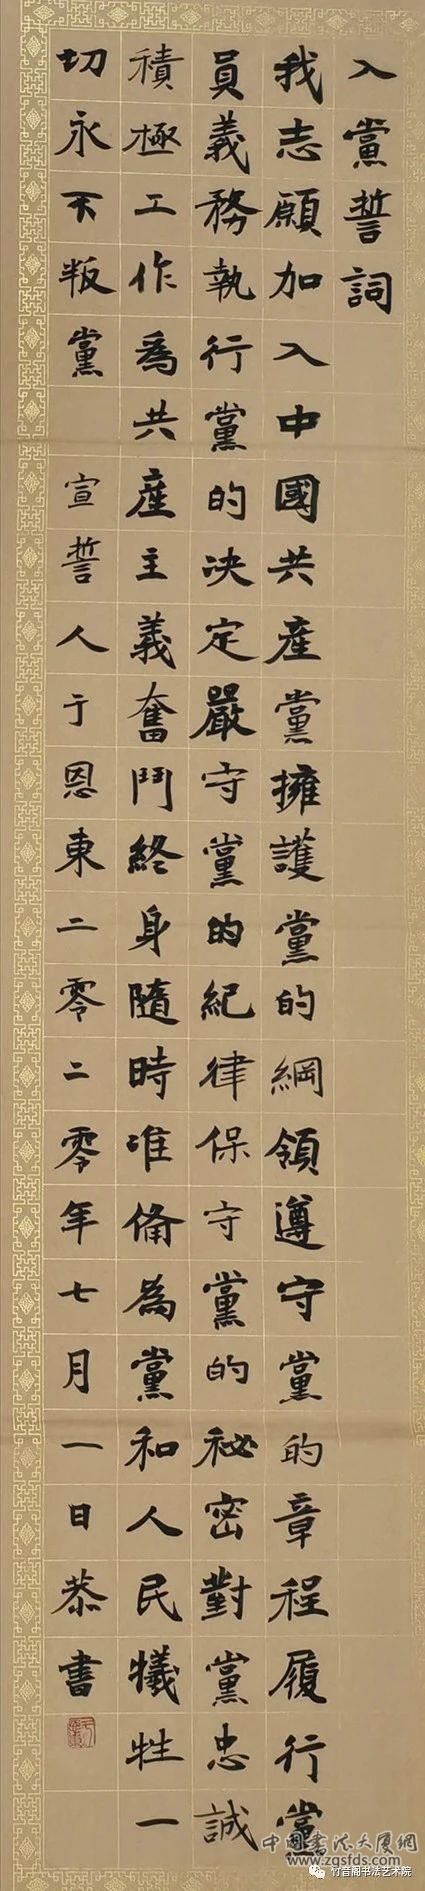 入黨誓詞
我志願加入中國共產黨擁護黨的綱領遵守黨的章程履行黨
員義務執行黨的決定嚴守黨的紀律保守黨的祕密對黨忠誠
積極工作爲共產主義奮鬥終身隨時准備為黨和人民犧牲一
切永不叛黨 宣誓人于恩東二零二零年七月一日恭書
中国书法大厦網
www.zgsfds.com
竹音阁书法艺术院